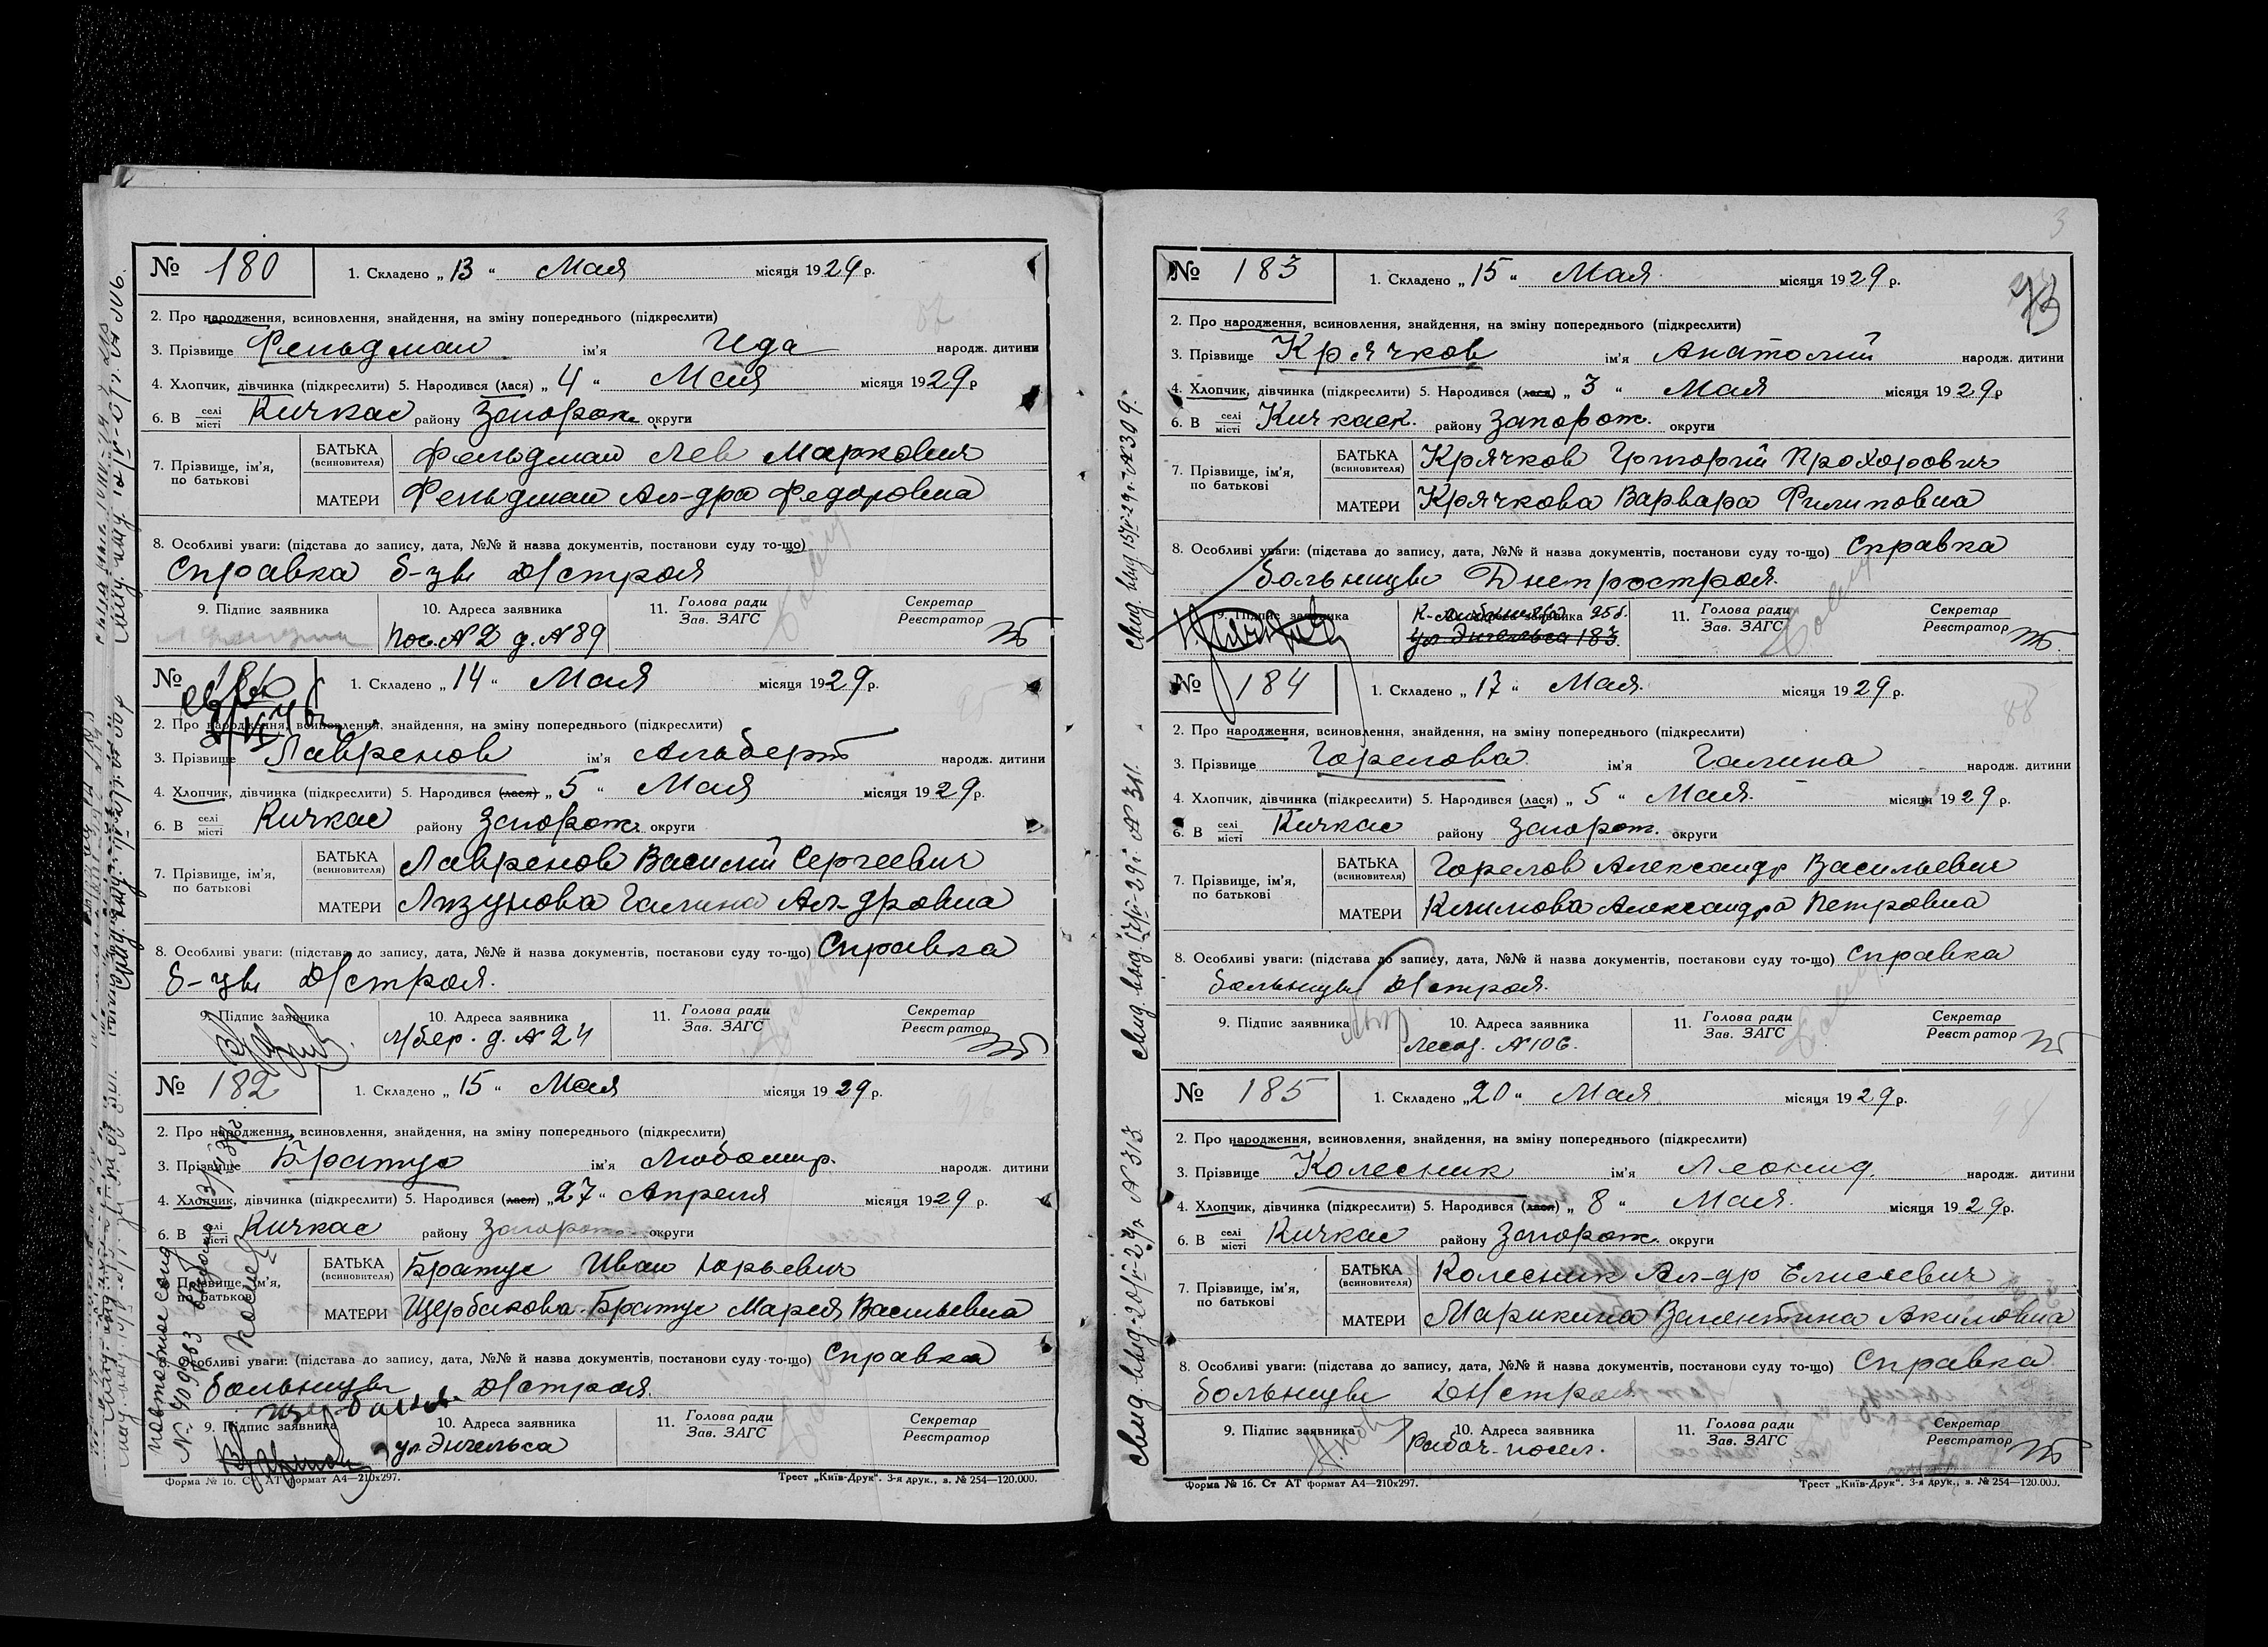 № 180 1. Складено „ 13 “ Мая місяця 1929 р.
2. Про народження, всиновлення, знайдення, на зміну попереднього (підкреслити)
3. Прізвище Фельдман ім'я Ида народж. дитини
4. Хлопчик, дівчинка (підкреслити) 5. Народився (лася) „ 4 “ Мая місяця 1929 р
6. В селі місті Кичкас району Запорож. округи
7. Прізвище, ім'я, по батькові
БАТЬКА (всиновителя) Фельдман Лев Маркович
МАТЕРИ Фельдман Ал-дра Федоровна
8. Особливі уваги: (підстава до запису, дата, №№ й назва документів, постанови суду то-що)
Справка б-цы Д/строя
9. Підпис заявника 10. Адреса заявника 11. Голова ради Зав. ЗАГС Секретар Реєстратор
пос. № 2 д. № 89
№ 1. Складено „ 14 “ Мая місяця 1929 р.
2. Про народження, всиновлення, знайдення, на зміну попереднього (підкреслити)
3. Прізвище Лавренов ім'я Альберт народж. дитини
4. Хлопчик, дівчинка (підкреслити) 5. Народився (лася) „ 5 “ Мая місяця 1929 р.
6. В селі місті Кичкас району Запорож. округи
7. Прізвище, ім'я, по батькові
БАТЬКА (всиновителя) Лавренов Василий Сергеевич
МАТЕРИ Лизунова Галина Ал-дровна
8. Особливі уваги: (підстава до запису, дата, №№ й назва документів, постанови суду то-що) Справка
б-цы Д/строя.
9. Підпис заявника 10. Адреса заявника 11. Голова ради Зав. ЗАГС Секретар Реєстратор
л/бер. д. № 24
№ 182 1. Складено „ 15 “ Мая місяця 1929 р.
2. Про народження, всиновлення, знайдення, на зміну попереднього (підкреслити)
3. Прізвище Братус ім'я Любомир. народж. дитини
4. Хлопчик, дівчинка (підкреслити) 5. Народився (лася) „ 27 “ Апреля місяця 1929 р.
6. В селі місті Кичкас району Запорож. округи
7. Прізвище, ім'я, по батькові
БАТЬКА (всиновителя) Братус Иван Юрьевич
МАТЕРИ Щербакова-Братус Мария Васильевна
8. Особливі уваги: (підстава до запису, дата, №№ й назва документів, постанови суду то-що) Справка
больницы Д/строя.
9. Підпис заявника 10. Адреса заявника 11. Голова ради Зав. ЗАГС Секретар Реєстратор
ул Энгельса
Форма № 16. Ст АТ формат А4—210x297. Трест „Київ-Друк“. 3-я друк., з. № 254—120.000.
№ 183 1. Складено „ 15 “ Мая. місяця 1929 р.
73
2. Про народження, всиновлення, знайдення, на зміну попереднього (підкреслити)
3. Прізвище Крячков ім'я Анатолий народж. дитини
4. Хлопчик, дівчинка (підкреслити) 5. Народився (лася) „ 3 “ Мая місяця 1929 р
6. В селі місті Кичкас. району Запорож. округи
7. Прізвище, ім'я, по батькові
БАТЬКА (всиновителя) Крячков Григорий Прохорович
МАТЕРИ Крячкова Варвара Филиповна
8. Особливі уваги: (підстава до запису, дата, №№ й назва документів, постанови суду то-що) Справка
больницы Днепростроя.
9. Підпис заявника 10. Адреса заявника 11. Голова ради Зав. ЗАГС Секретар Реєстратор
ул Энгельса 183.
№ 184 1. Складено „ 17 “ Мая. місяця 1929 р.
88
2. Про народження, всиновлення, знайдення, на зміну попереднього (підкреслити)
3. Прізвище Горелова ім'я Галина народж. дитини
4. Хлопчик, дівчинка (підкреслити) 5. Народився (лася) „ 5 “ Мая. місяця 1929 р.
6. В селі місті Кичкас району Запорож. округи
7. Прізвище, ім'я, по батькові
БАТЬКА (всиновителя) Горелов Александр Васильевич
МАТЕРИ Климова Александра Петровна
8. Особливі уваги: (підстава до запису, дата, №№ й назва документів, постанови суду то-що) Справка
больницы Д/строя.
9. Підпис заявника 10. Адреса заявника 11. Голова ради Зав. ЗАГС Секретар Реєстратор
№ 106.
№ 185 1. Складено „ 20 “ Мая місяця 1929 р.
98
2. Про народження, всиновлення, знайдення, на зміну попереднього (підкреслити)
3. Прізвище Колесник ім'я Леонид. народж. дитини
4. Хлопчик, дівчинка (підкреслити) 5. Народився (лася) „ 8 “ Мая. місяця 1929 р.
6. В селі місті Кичкас району Запорож. округи
7. Прізвище, ім'я, по батькові
БАТЬКА (всиновителя) Колесник Ал-др Елисеевич
МАТЕРИ Марикина Валентина Акимовна
8. Особливі уваги: (підстава до запису, дата, №№ й назва документів, постанови суду то-що) Справка
больницы Д/строя
9. Підпис заявника 10. Адреса заявника 11. Голова ради Зав. ЗАГС Секретар Реєстратор
Рабоч. посел.
Форма № 16. Ст АТ формат А4—210x297. Трест „Київ-Друк“. 3-я друк., з. № 254—120.000.
Свид. выд. 15/V-29 г. № 309.
Свид. выд. 17/V-29 г. № 311.
Свид. выд. 20/V-29 г. № 313.